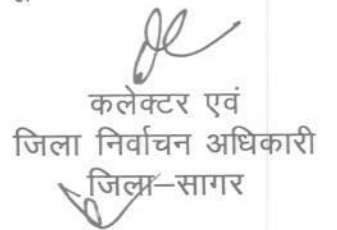 कलेक्टर एवं
जिला निर्वाचन अधिकारी
जिला–सागर